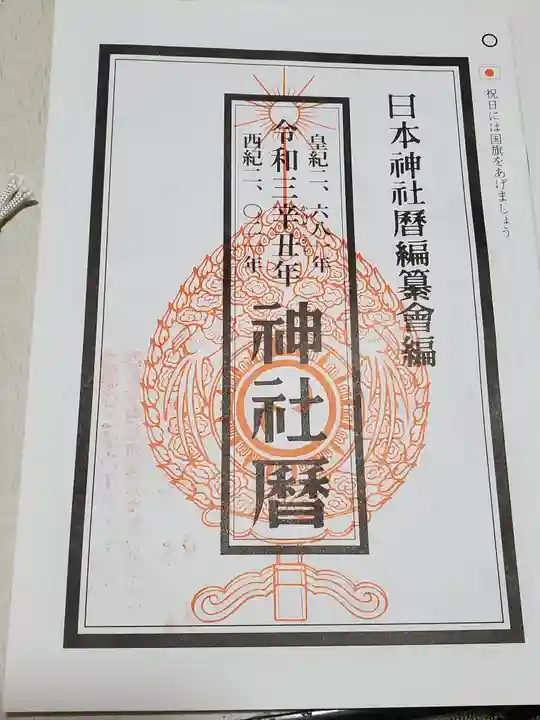 祝日には国旗をあげましょう
日本神社暦編纂會編
皇紀二、六八一年
令和三辛丑年
西紀二、〇二一年
神社暦